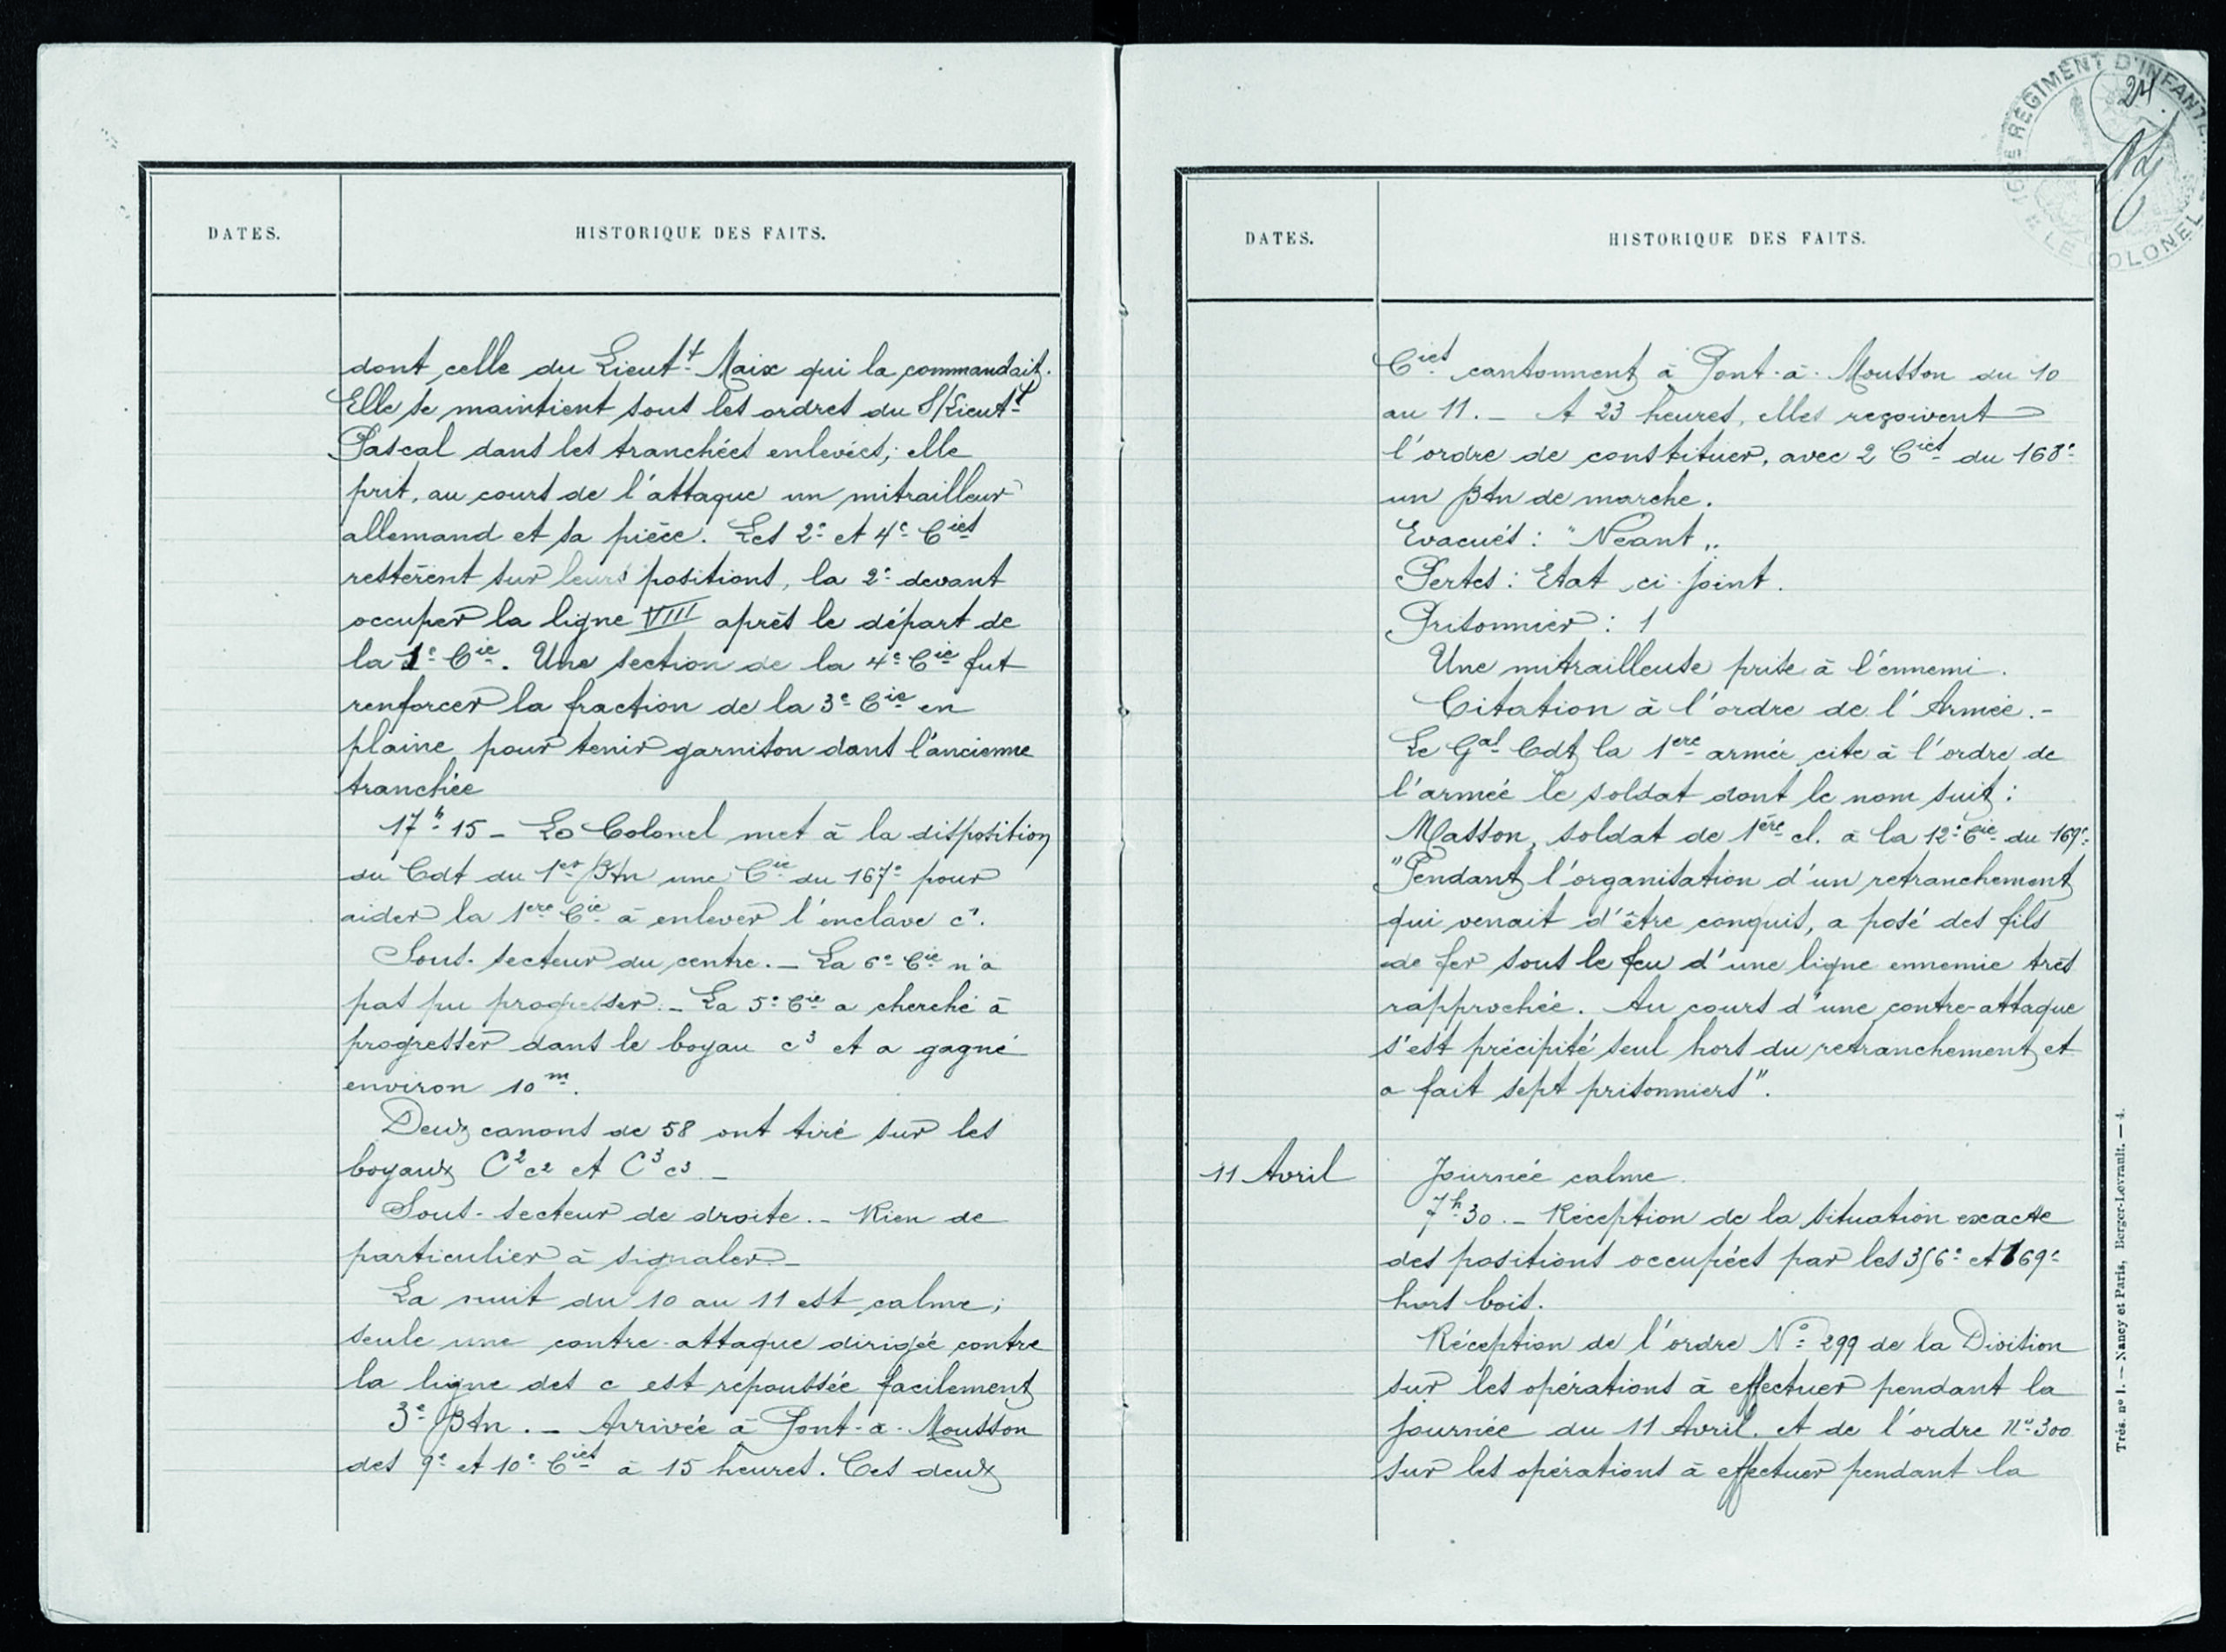 DATES.
HISTORIQUE DES FAITS.
dont celle du Lieutt Maix qui la commandait.
Elle se maintient sous les ordres du S/Lieutt
Pascal dans les tranchées enlevées; elle
prit, au cours de l'attaque un mitrailleur
allemand et sa pièce. Les 2e et 4e Cies
restèrent sur leurs positions, la 2e devant
occuper la ligne VIII après le départ de
la 1e Cie. Une section de la 4e Cie fut
renforcer la fraction de la 3e Cie en
plaine pour tenir garnison dans l'ancienne
tranchée
17h15 - Le Colonel met à la disposition
du Cdt du 1er Btn une Cie du 167e pour
aider la 1ere Cie à enlever l'enclave c1.
Sous-secteur du centre. - La 6e Cie n'a
pas pu progresser. - La 5e Cie a cherché à
progresser dans le boyau c3 et a gagné
environ 10m.
Deux canons de 58 ont tiré sur les
boyaux C2c2 et C3c3 -
Sous-secteur de droite. - Rien de
particulier à signaler -
La nuit du 10 au 11 est calme;
seule une contre-attaque dirigée contre
la ligne des c est repoussée facilement
3e Btn. - Arrivée à Pont-à-Mousson
des 9e et 10e Cies à 15 heures. Ces deux
24
RÉGIMENT D'INFANTE
LE COLONEL
DATES.
HISTORIQUE DES FAITS.
Cies cantonnent à Pont-à-Mousson du 10
au 11. - A 23 heures, elles reçoivent
l'ordre de constituer, avec 2 Cies du 168e
un Btn de marche.
Evacués : "Néant"
Pertes : Etat ci-joint.
Prisonnier : 1
Une mitrailleuse prise à l'ennemi.
Citation à l'ordre de l'Armée. -
Le Gal Cdt la 1ere armée cite à l'ordre de
l'armée le soldat dont le nom suit :
Masson, soldat de 1ère cl. à la 12e Cie du 169e
"Pendant l'organisation d'un retranchement
qui venait d'être conquis, a posé des fils
de fer sous le feu d'une ligne ennemie très
rapprochée. Au cours d'une contre-attaque
s'est précipité seul hors du retranchement et
a fait sept prisonniers".
11 Avril
Journée calme.
7h30. - Réception de la situation exacte
des positions occupées par les 356e et 169e
hors bois.
Réception de l'ordre No 299 de la Division
sur les opérations à effectuer pendant la
journée du 11 Avril. et de l'ordre No 300
sur les opérations à effectuer pendant la
Trés. no 1. — Nancy et Paris, Berger-Levrault. — 4.